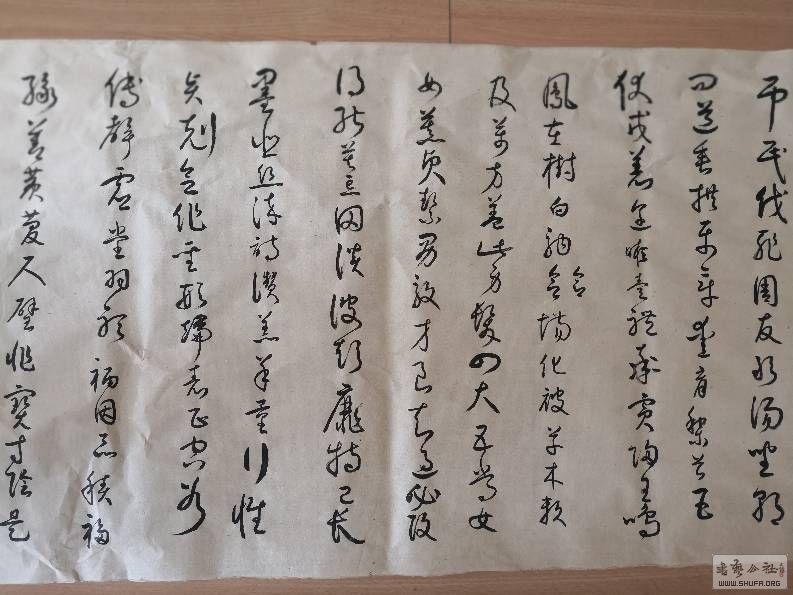 弔民伐罪周發殷湯坐朝
問道垂拱平章愛育黎首臣
伏戎羌遐邇壹體率賓歸王鳴
鳳在樹白駒食場化被草木賴
食
及萬方蓋此身髮四大五常女
女慕貞絜男效才良知過必改
得能莫忘罔談彼短靡恃己長
墨悲絲染詩讚羔羊景行維
賢剋念作聖形端表正空谷
傳聲虛堂習聽禍因惡積福
緣善慶尺璧非寶寸陰是
书艺公社
WWW.SHUFA.ORG